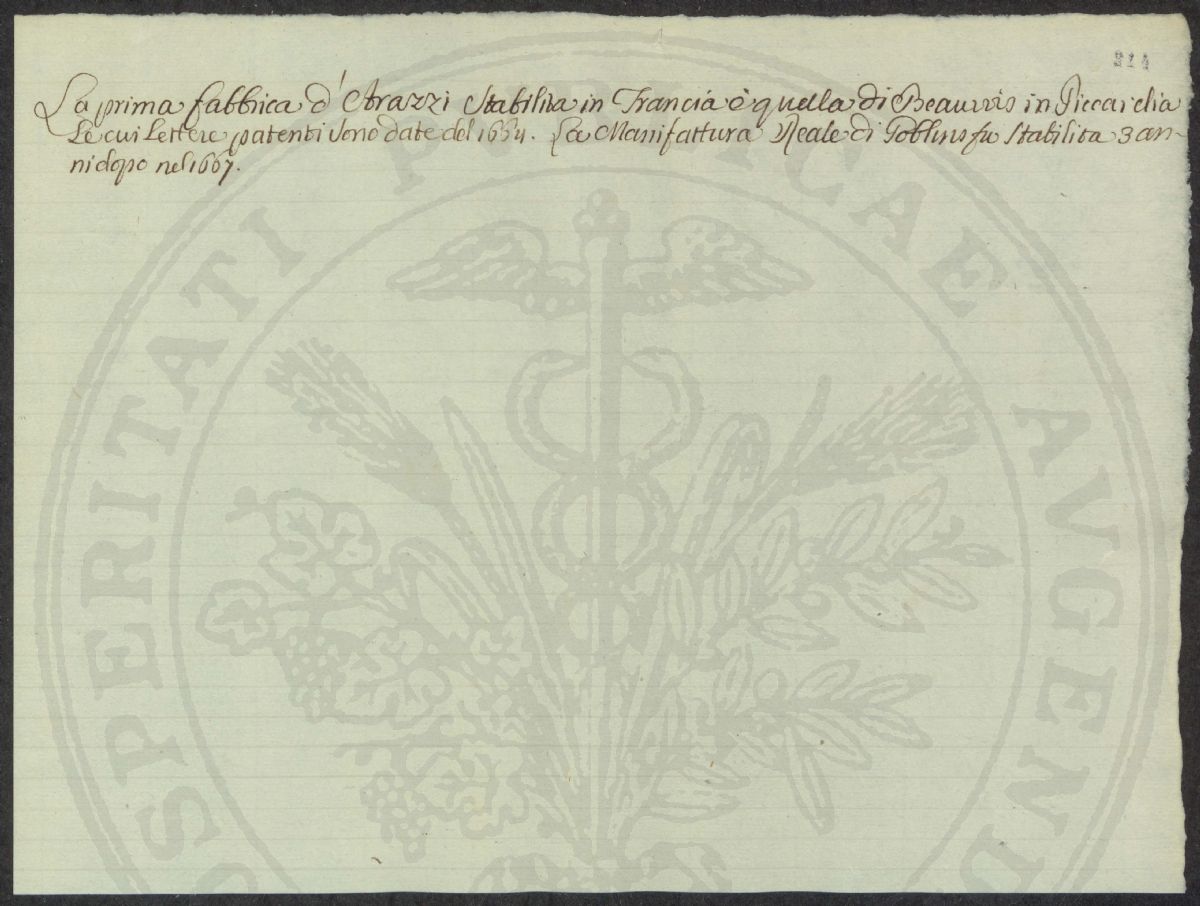 314
La prima fabbrica d'Arazzi stabilita in Francia è quella di Beauvvis in Piccardia
le cui Lettere patenti sono date del 1664. La Manifattura Reale di Goblins fu stabilita 3 an-
ni dopo nel 1667.
PROSPERITATI PVBLICAE AVGENDAE